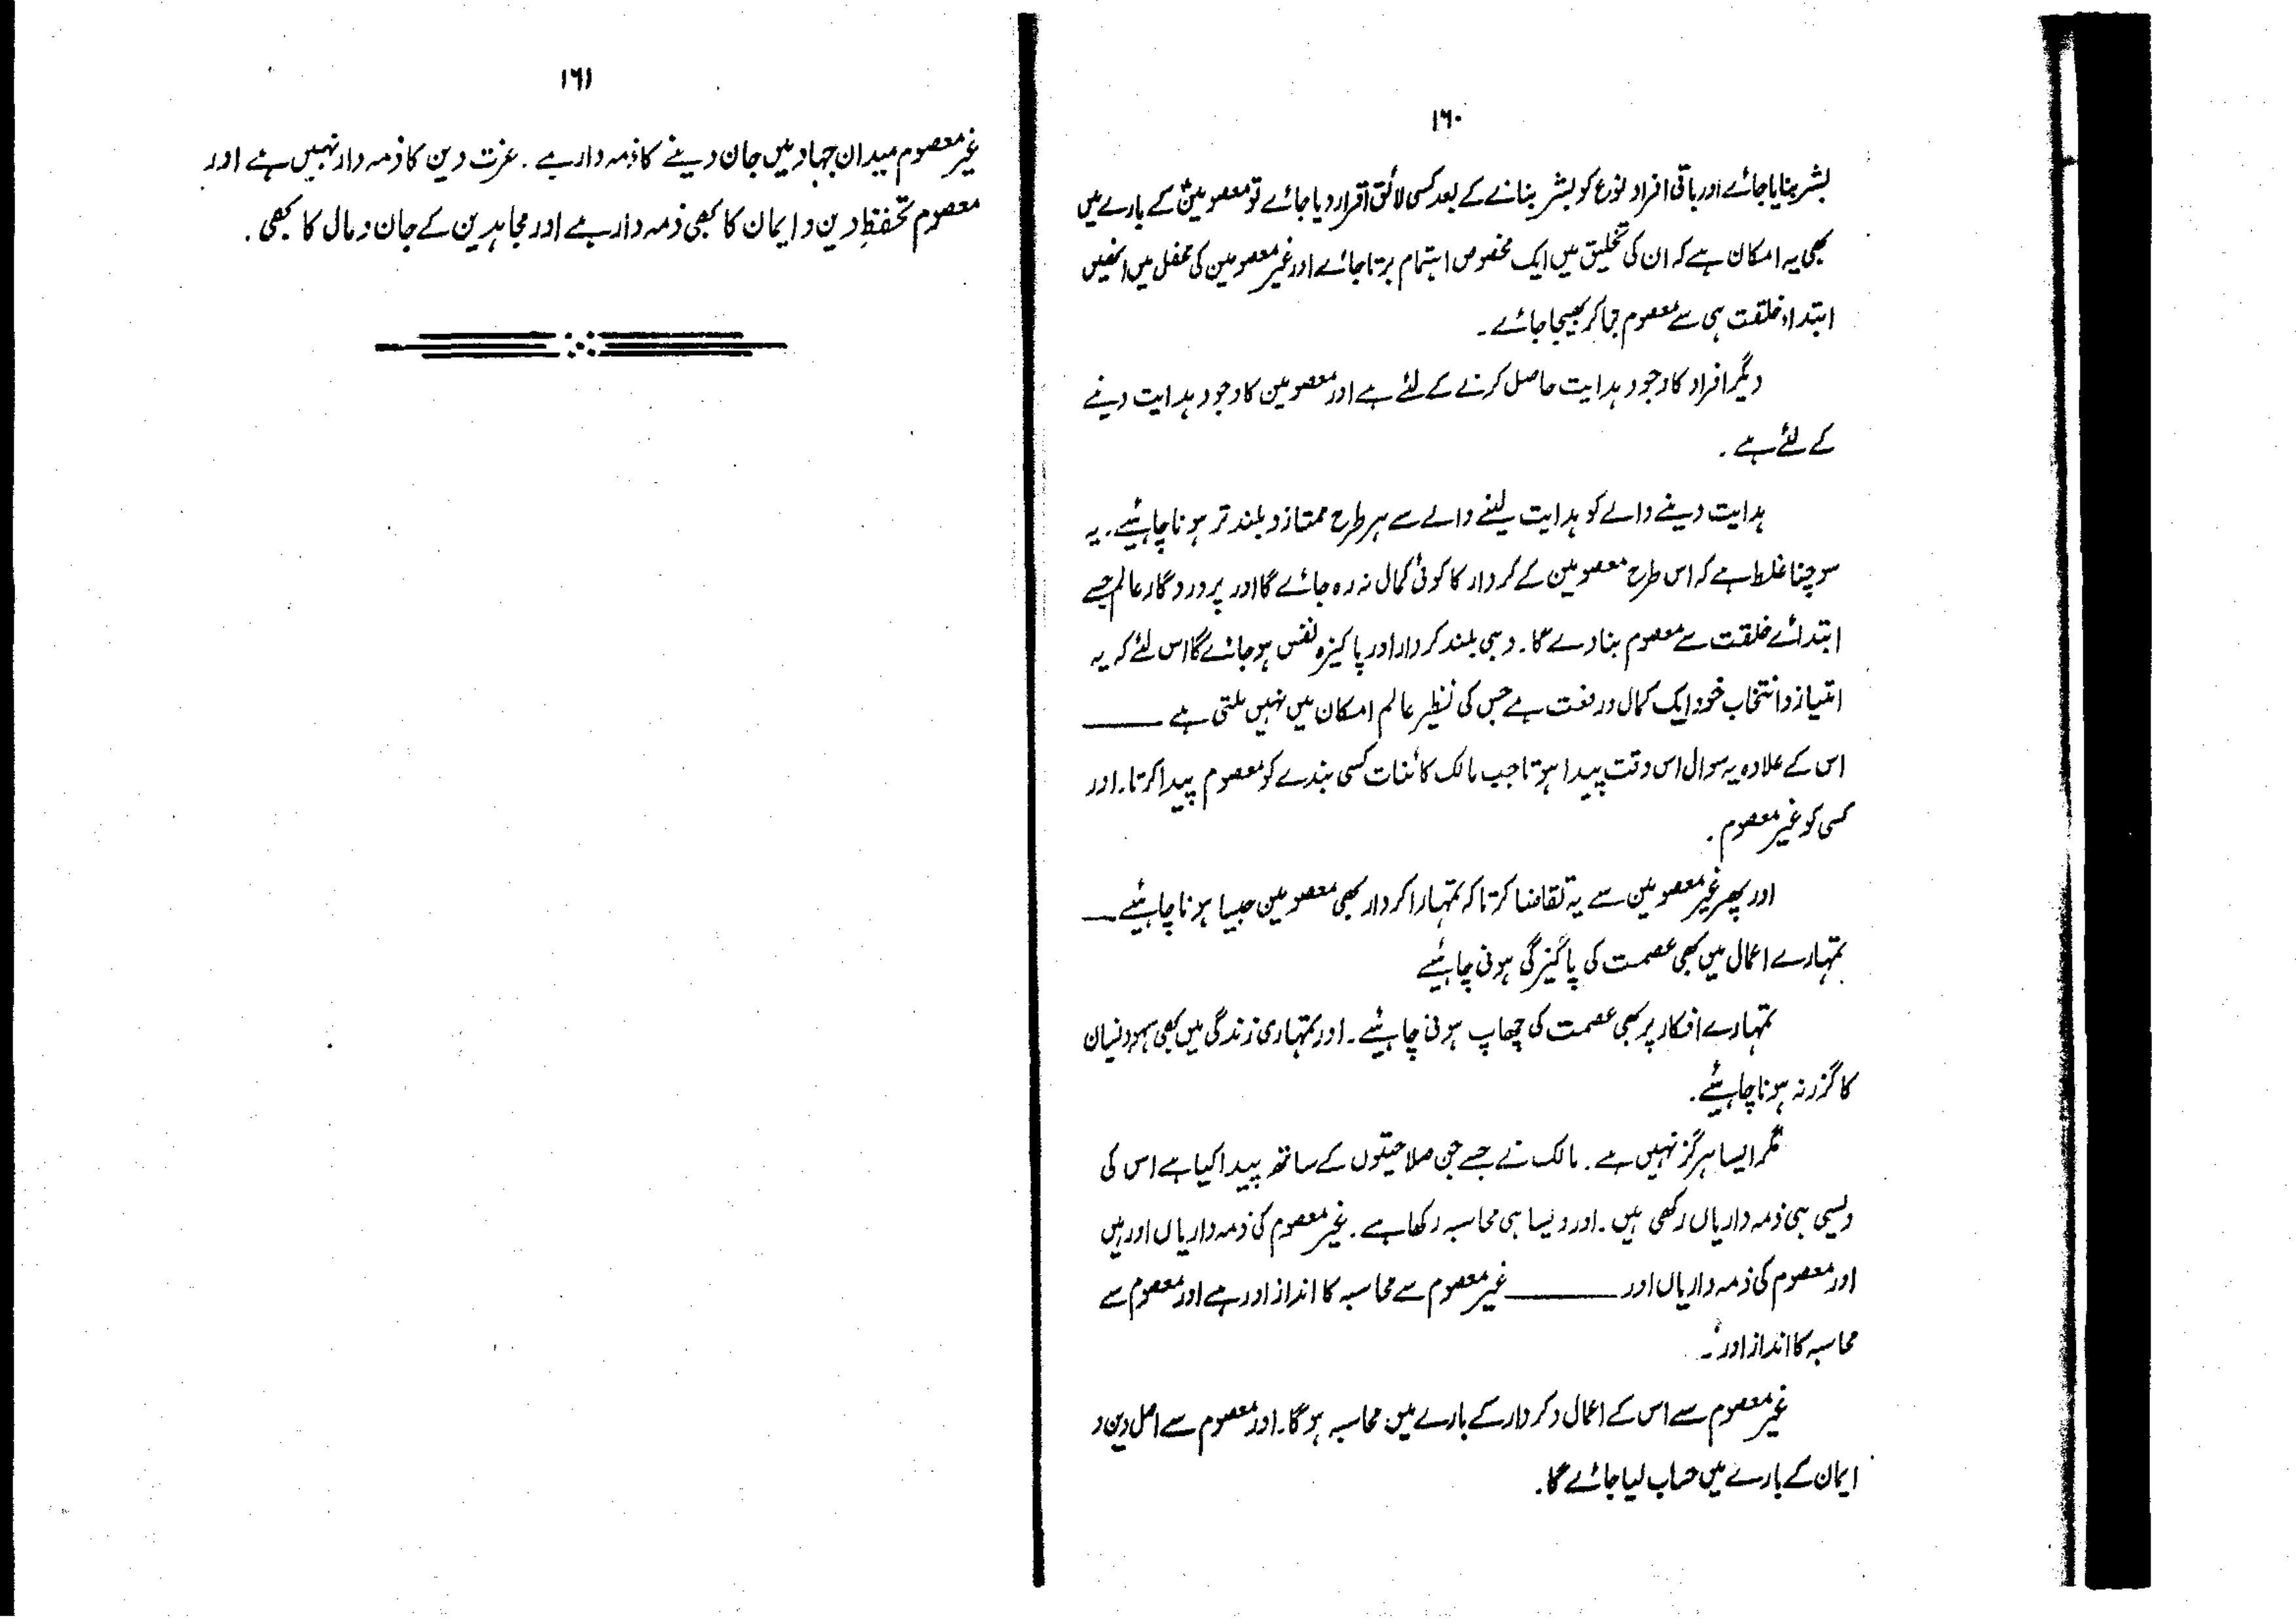 ۱۶۰
بشر بنایا جائے اور باقی افراد نوع کو بشر بنانے کے بعد کسی لائق قرار دیا جائے تو معصومینؑ کے بارے میں
بھی یہ امکان ہے کہ ان کی تخلیق میں ایک مخصوص اہتمام برتا جائے اور غیر معصومین کی محفل میں انھیں
ابتداء خلقت ہی سے معصوم بنا کر بھیجا جائے۔
دیگر افراد کا وجود ہدایت حاصل کرنے کے لئے ہے اور معصومین کا وجود ہدایت دینے
کے لئے ہے۔
ہدایت دینے والے کو ہدایت لینے والے سے ہر طرح ممتاز و بلند تر ہونا چاہئیے۔ یہ
سوچنا غلط ہے کہ اس طرح معصومین کے کردار کا کوئی کمال نہ رہ جائے گا اور پروردگار عالم جسے
ابتدائے خلقت سے معصوم بنا دے گا۔ وہی بلند کردار اور پاکیزہ نفس ہو جائے گا اس لئے کہ یہ
امتیاز و انتخاب خود ایک کمال و رفعت ہے جس کی نظیر عالم امکان میں نہیں ملتی ہے ـــــــ
اس کے علاوہ یہ سوال اس وقت پیدا ہوتا جب مالک کائنات کسی بندے کو معصوم پیدا کرتا۔ اور
کسی کو غیر معصوم۔
اور پھر غیر معصومین سے یہ تقاضا کرتا کہ تمہارا کردار بھی معصومین جیسا ہونا چاہئیے ـــــ
تمہارے اعمال میں بھی عصمت کی پاکیزگی ہونی چاہئیے
تمہارے افکار پر بھی عصمت کی چھاپ ہونی چاہئیے۔ اور تمہاری زندگی میں بھی سہو و نسیان
کا گزر نہ ہونا چاہئیے۔
مگر ایسا ہرگز نہیں ہے۔ مالک نے جسے جن صلاحیتوں کے ساتھ پیدا کیا ہے اس کی
ویسی ہی ذمہ داریاں رکھی ہیں۔ اور ویسا ہی محاسبہ رکھا ہے۔ غیر معصوم کی ذمہ داریاں اور ہیں
اور معصوم کی ذمہ داریاں اور ـــــــــــ غیر معصوم سے محاسبہ کا انداز اور ہے اور معصوم سے
محاسبہ کا انداز اور۔
غیر معصوم سے اس کے اعمال و کردار کے بارے میں محاسبہ ہوگا۔ اور معصوم سے اصل دین و
ایمان کے بارے میں حساب لیا جائے گا۔
۱۶۱
غیر معصوم میدان جہاد میں جان دینے کا ذمہ دار ہے۔ عزت دین کا ذمہ دار نہیں ہے اور
معصوم تحفظِ دین و ایمان کا بھی ذمہ دار ہے اور مجاہدین کے جان و مال کا بھی۔